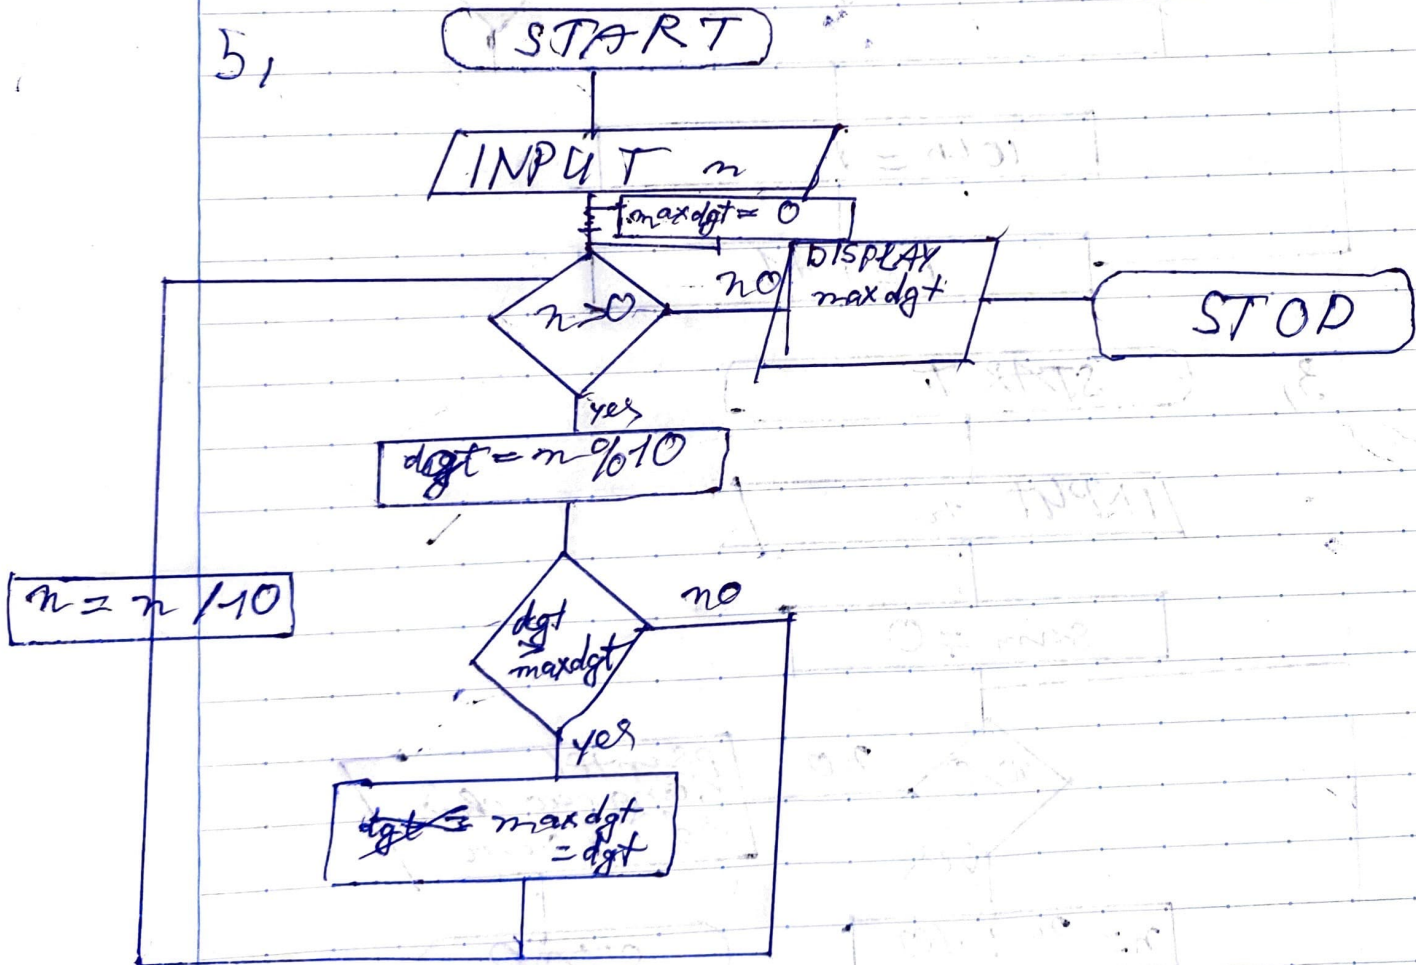 5,
START
INPUT n
maxdgt = 0
n>0
no
DISPLAY
maxdgt
STOP
yes
dgt = n%10
n = n/10
dgt
>
maxdgt
no
yes
maxdgt
= dgt